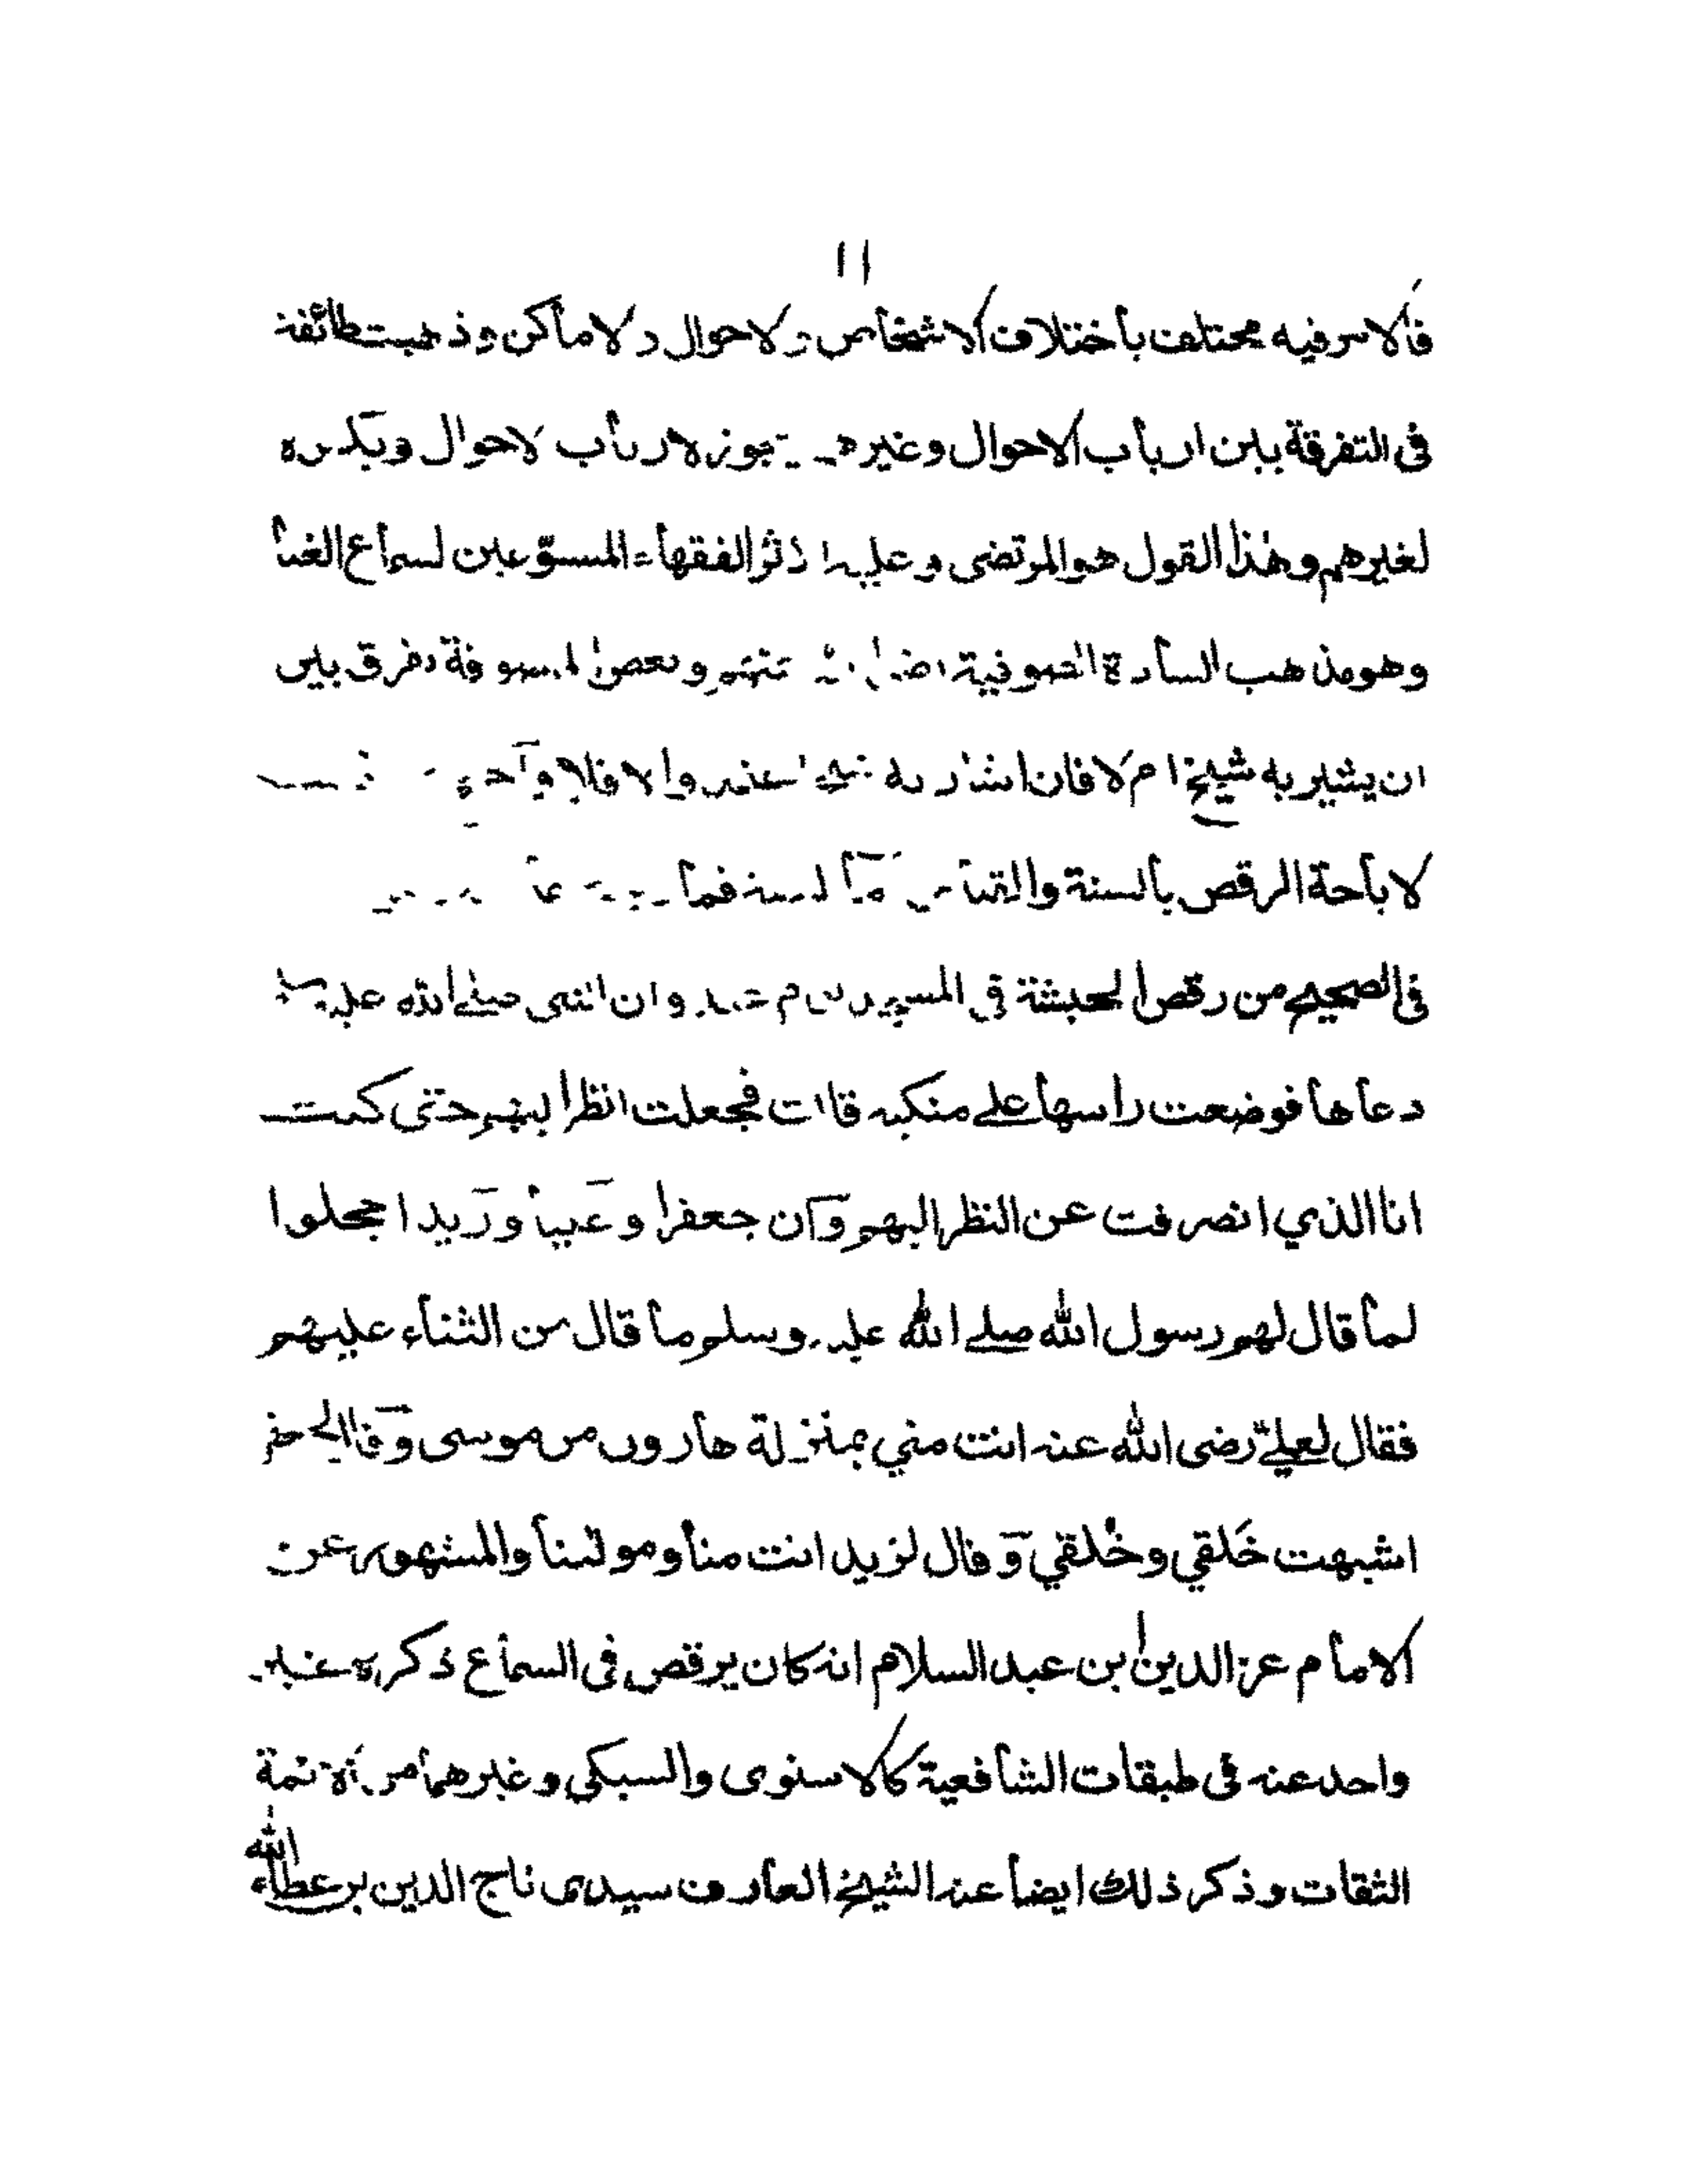 ١١
فالامر فيه مختلف باختلاف الاشخاص والاحوال والاماكن وذهبت طائفة
فى التفرقة بين ارباب الاحوال وغيرهم يجوز لارباب الاحوال ويكره
لغيرهم وهذا القول هو المرتضى وعليه اكثر الفقهاء المسوّغين لسماع الغنا
وهو مذهب السادة الصوفية وبعض الصوفة يفرق بين
ان يشير به شيخ ام لا فان اشار به شيخ والا فلا
لاباحة الرقص بالسنة والقياس اما السنة فما
فى الصحيح من رقص الحبشة فى المسجد يوم عيد وان النبى صلى الله عليه
دعاها فوضعت راسها على منكبه قالت فجعلت انظر اليهم حتى كنت
انا الذي انصرفت عن النظر اليهم وان جعفرا وعليا وزيدا حجلوا
لما قال لهم رسول الله صلى الله عليه وسلم ما قال من الثناء عليهم
فقال لعليّ رضى الله عنه انت مني بمنزلة هارون من موسى وقال
اشبهت خَلقي وخُلقي وقال لزيد انت منا ومولىنا والمشهور عن
الامام عز الدين بن عبد السلام انه كان يرقص فى السماع ذكره غير
واحد عنه فى طبقات الشافعية كالاسنوى والسبكى وغيرهما من ائمة
الثقات وذكر ذلك ايضا عنه الشيخ العارف سيدى تاج الدين بن عطاء الله